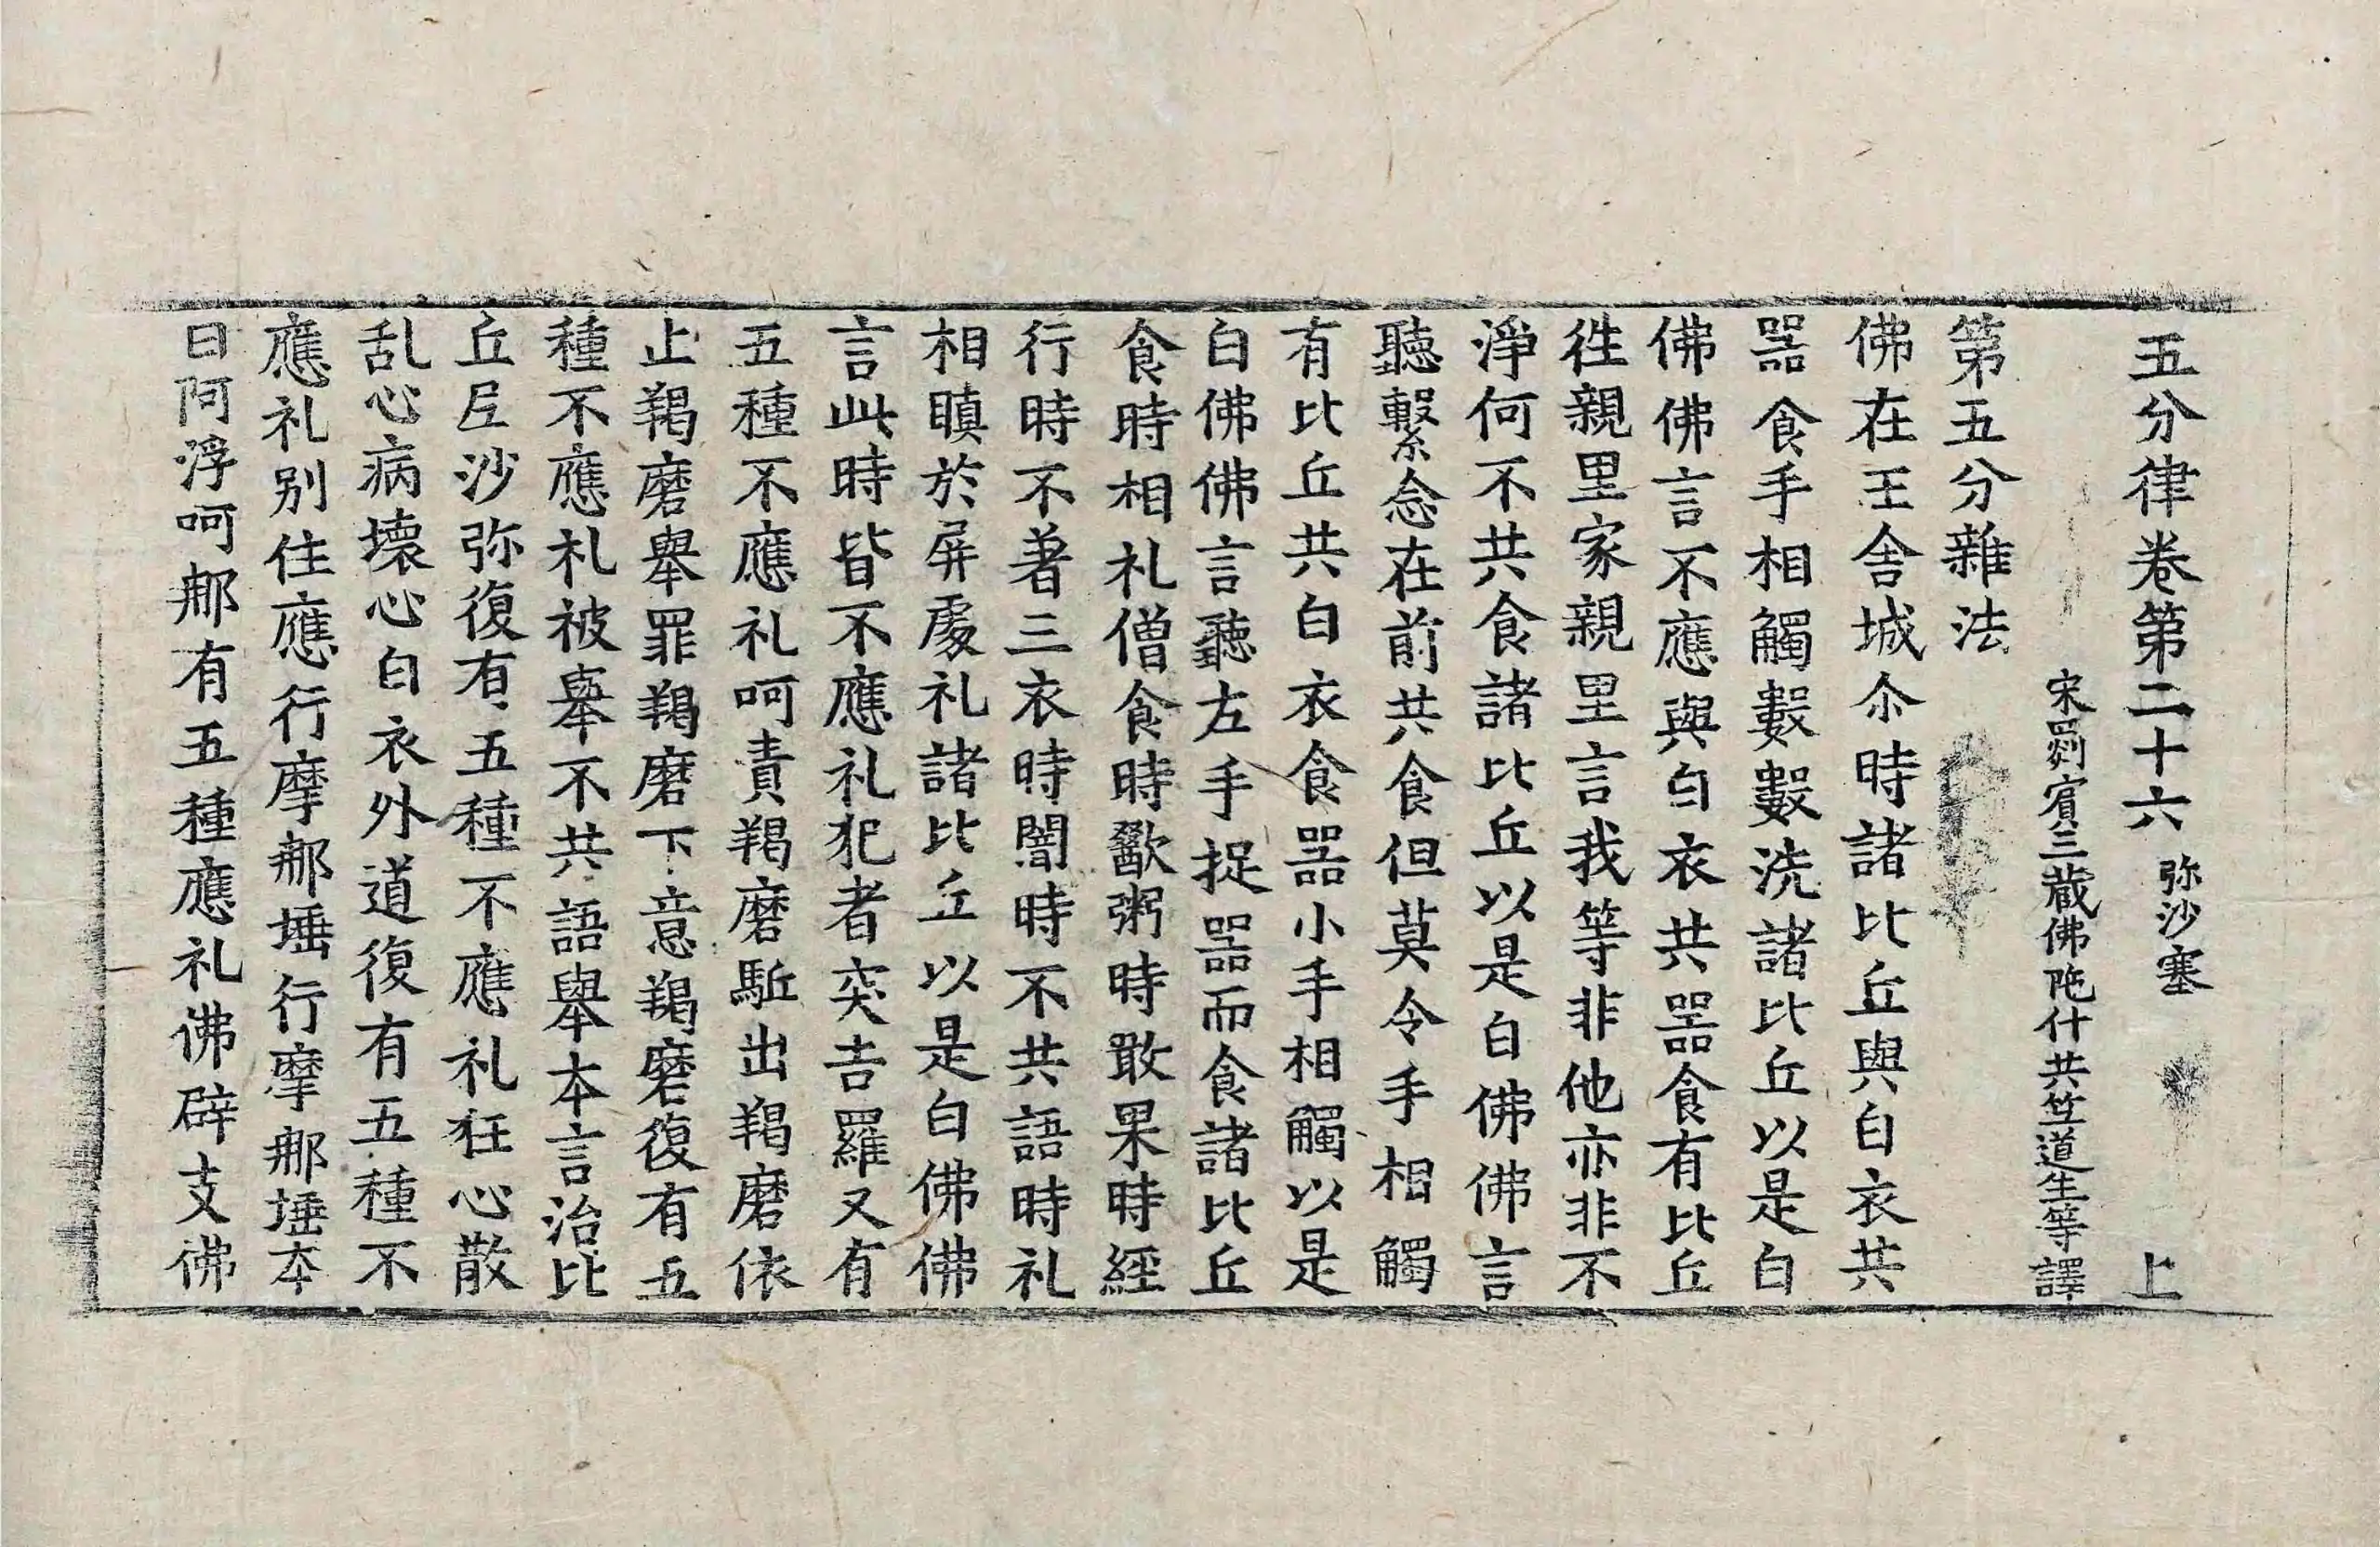 五分律卷第二十六 弥沙塞 上
宋罽賓三藏佛陁什共笁道生等譯
第五分雜法
佛在王舍城尒時諸比丘與白衣共
噐食手相觸數數洗諸比丘以是白
佛佛言不應與白衣共噐食有比丘
徃親里家親里言我等非他亦非不
淨何不共食諸比丘以是白佛佛言
聽繫念在前共食但莫令手相觸
有比丘共白衣食噐小手相觸以是
白佛佛言聽左手捉噐而食諸比丘
食時相礼僧食時歠粥時噉果時經
行時不著三衣時闇時不共語時礼
相瞋於屏處礼諸比丘以是白佛佛
言此時皆不應礼犯者突吉羅又有
五種不應礼呵責羯磨駈出羯磨依
止羯磨舉罪羯磨下意羯磨復有五
種不應礼被舉不共語舉本言治比
丘尼沙弥復有五種不應礼狂心散
乱心病壞心白衣外道復有五種不
應礼别住應行摩那埵行摩那埵本
日阿浮呵那有五種應礼佛辟支佛